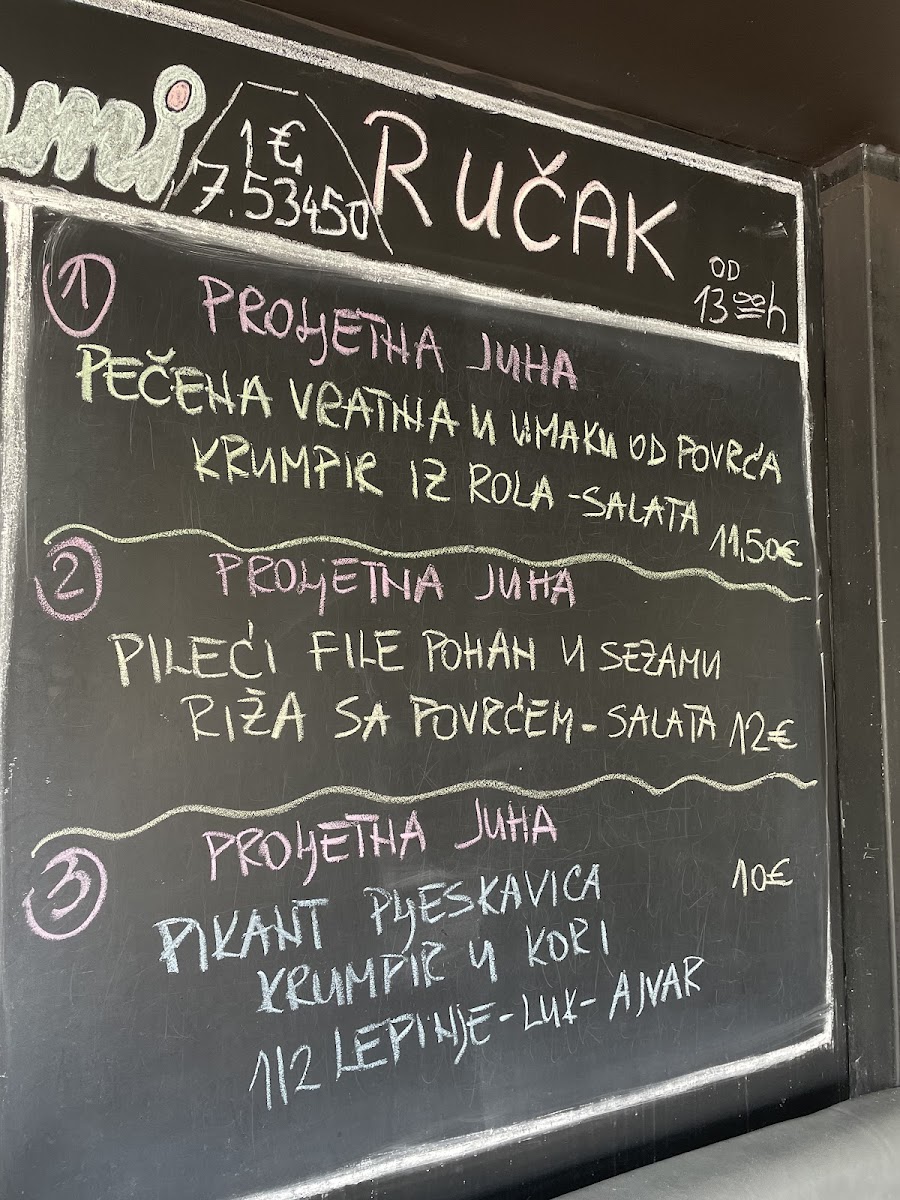 1 €
7.53450
RUČAK
OD
13 00 h
1
PROLJETNA JUHA
PEČENA VRATINA U UMAKU OD POVRĆA
KRUMPIR IZ ROLA - SALATA
11,50€
2
PROLJETNA JUHA
PILEĆI FILE POHAN U SEZAMU
RIŽA SA POVRĆEM - SALATA 12€
3
PROLJETNA JUHA
10€
PIKANT PLJESKAVICA
KRUMPIR U KORI
1/2 LEPINJE - LUK - AJVAR